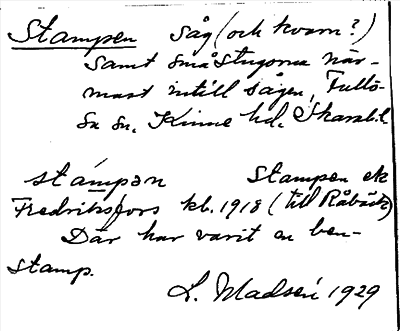 Stampen såg (och kvarn?)
samt små stugorna när-
mast intill sågen, Fullö-
sa sn. Kinne hd. Skarab. l.
stámpan Stampen ek
Fredriksfors kb. 1918 (till Råbäck)
Där har varit en ben-
stamp.
L. Madsén 1929